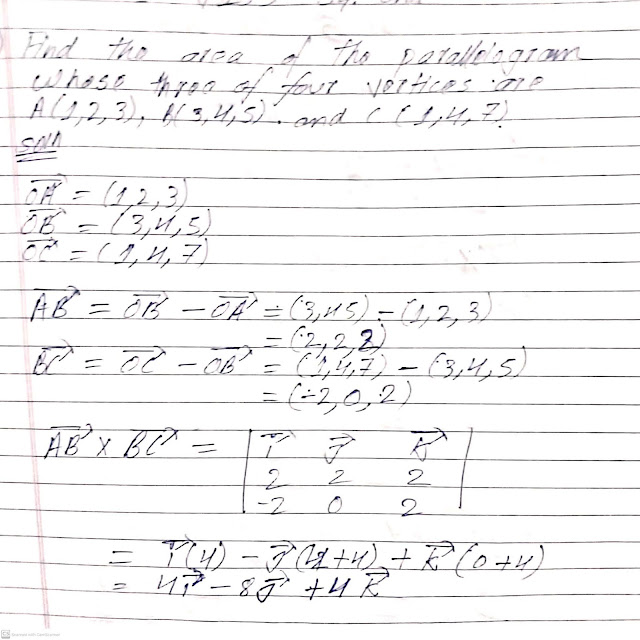 Find the area of the parallelogram
whose three of four vertices are
A(1,2,3), B(3,4,5). and C (1,4,7).
soln
OA = (1,2,3)
OB = (3,4,5)
OC = (1,4,7)
AB = OB - OA = (3,4 5) - (1,2,3)
= (2,2,2)
BC = OC - OB = (1,4,7) - (3,4,5)
= (-2,0,2)
AB x BC = | i j k
2 2 2
-2 0 2 |
= i(4) - j(4+4) + k(0+4)
= 4i - 8j + 4k